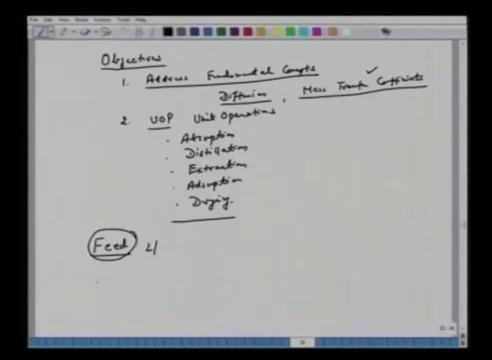 Objectives
1. Address Fundamental Concepts
Diffusion, Mass Transfer Coefficients
2. UOP Unit Operations
. Absorption
. Distillation
. Extraction
. Adsorption
. Drying.
Feed